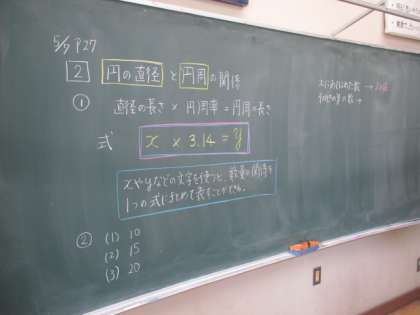 5/9 P27
2 円の直径 と 円周 の関係
① 直径の長さ × 円周率 = 円周の長さ
式 x × 3.14 = y
xやyなどの文字を使うと、数量の関係を
1つの式にまとめて表すことができる。
② (1) 10
(2) 15
(3) 20
xにあてはめた数 →